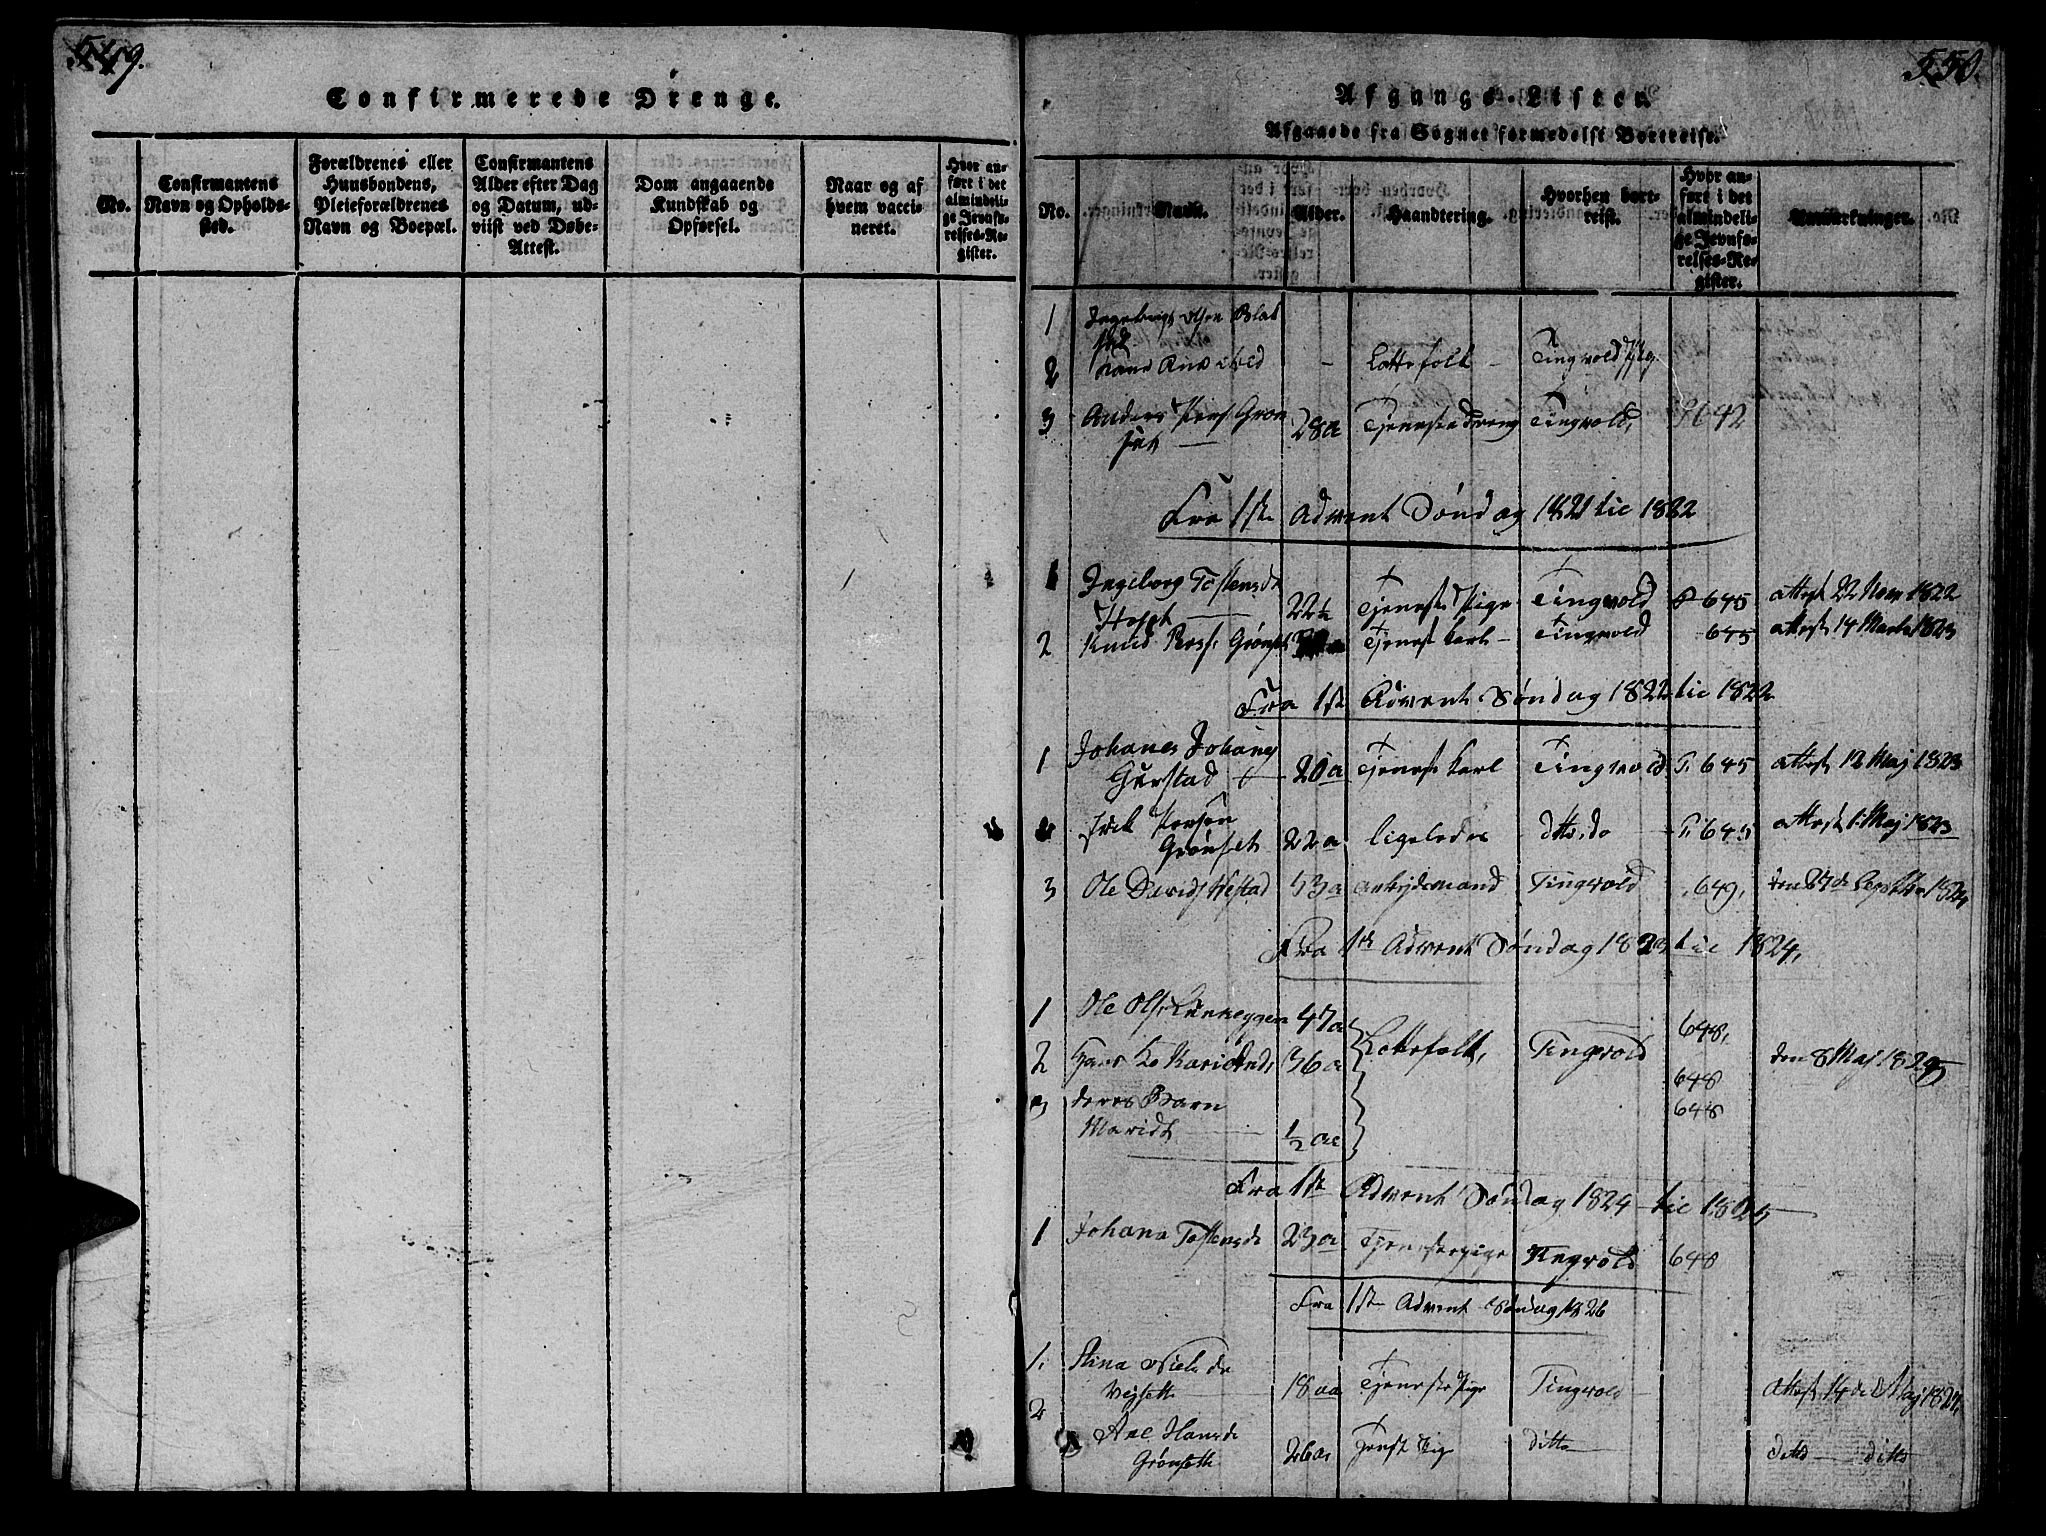 549.
Confirmerede Drenge.
No.
Confirmantens Navn og Opholdssted.
Forældrenes eller Huusbondens, Pleieforældrenes Navn og Boepæl.
Confirmantens Alder efter Dag og Datum, udviist ved Døbe-Attest.
Dom angaaende Kundskab og Opførsel.
Naar og af hvem vaccineret.
Hvor anført i det almindelige Jevnførelses-Register.
550.
Afgangs-Listen
Afgaaede fra Sognet formedelst Bortreise.
No.
Navn.
Alder.
Haandtering.
Hvorhen bortreist.
Hvor anført i det almindelige Jevnførelses-Register.
Anmærkninger.
1 Ingeborg Olsen
2 Lottefolk - Tingvold
3 Anders Pers. Grønset 28a Tjenestedreng Tingvold, 642
Fra 1ste Advent Søndag 1821 til 1822
1 Ingeborg Tostensd
22½ Tjeneste Pige Tingvold 645 Attest 22 Novr 1822
2 Knud Grønset Tjeneste Karl - Tingvold 645 Attest 14 Marts 1823
Fra 1ste Advent Søndag 1822 til 1822
1 Johanes Johanes
Gurstad 20a Tjeneste Karl Tingvold 645 Attest 12 Maj 1823
Persen
Grønset 22a ligeledes ditto 645 Attest 1. Maj 1823
3 Ole Davids 53a Tingvold 649,
Fra 1ste Advent Søndag 1823 til 1824,
1 Ole Ols. 47a Lottefolk, Tingvold 648,
2 Hans Ko 36a 648 den 8 Maj 1825
3 deres Barn 648
Maridt ½ aar
Fra 1ste Advent Søndag 1824 til 1825
1 Johana Tostensd 23a Tjenestepige Tingvold 648
Fra 1ste Advent Søndag 1826
1. Stina Nielsd
Vejsett 18aa Tjeneste Pige Tingvold Attest 14de Maj 1827,
2 Hansd
Grønsett 26a Tjenst Pig ditto ditto ditto